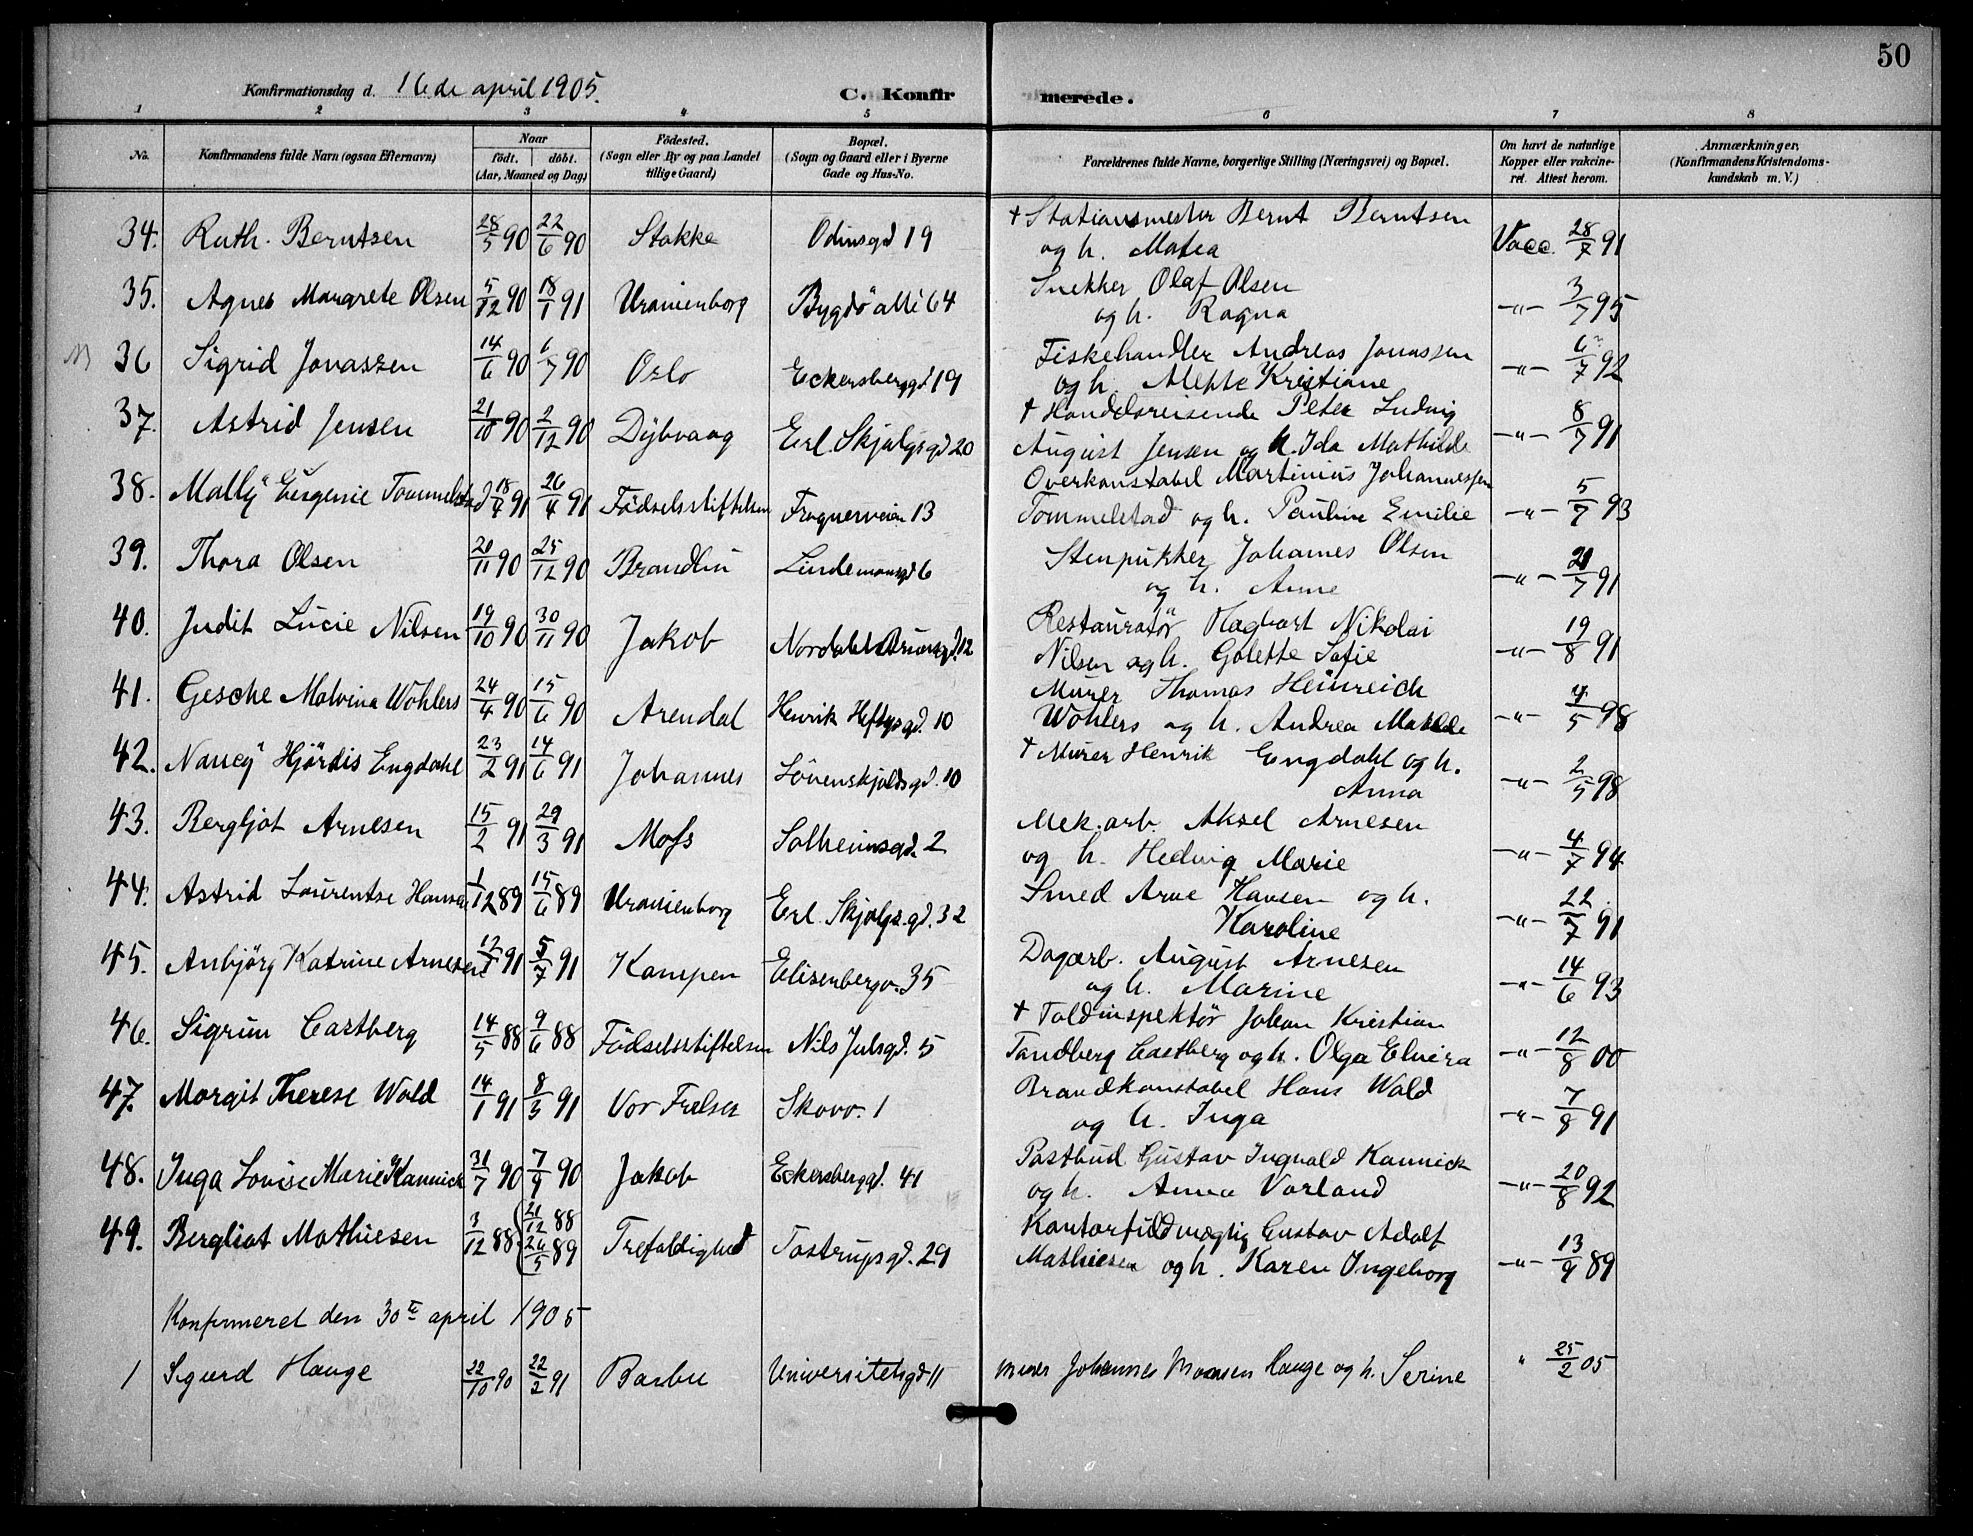 50
Konfirmationsdag d. 16de april 1905.
C. Konfirmerede.
1 2 3 4 5 6 7 8
No. Konfirmandens fulde Navn (ogsaa Efternavn) Naar født. døbt. (Aar, Maaned og Dag) Födested. (Sogn eller By og paa Landet tillige Gaard) Bopæl. (Sogn og Gaard eller i Byerne Gade og Hus-No. Forældrenes fulde Navne, borgerlige Stilling (Næringsvei) og Bopæl. Om havt de naturlige Kopper eller vakcineret. Attest herom. Anmærkninger, (Konfirmandens Kristendomskundskab m. V.)
34. Ruth. Berntsen 28/5 90 22/6 90 Stokke Odinsgd 19 † Stationsmester Bernt Berntsen
og h. Matea Vacc. 28/7 91
35. Agnes Margrete Olsen 5/12 90 18/1 91 Uranienborg Bygdö allé 64 Snekker Olaf Olsen
og h. Ragna -"- 3/7 95
36 Sigrid Jonassen 14/6 90 6/7 90 Oslo Eckersbergsgd 19 Fiskehandler Andreas Jonassen
og h. Kristiane -"- 6/7 92
37. Astrid Jensen 21/10 90 2/12 90 Dybvaag Erl. Skjalgsgd 20 † Handelsreisende Peter Ludvig
August Jensen og h. Ida Mathilde -"- 8/7 91
38. Mally Eugenie Tommelstad 18/4 91 26/4 91 Födselsstiftelsen Frognerveien 13 Overkonstabel Martinius Johannessen
Tommelstad og h. Pauline Emilie -"- 5/7 93
39. Thora Olsen 20/11 90 25/12 90 Brandbu Lindemansgd 6 Stenpukker Johannes Olsen
og h. Anne -"- 21/7 91
40. Judit Lucie Nilsen 19/10 90 30/11 90 Jakob Nordahl Brunsgd. 12 Restauratør Hagbart Nikolai
Nilsen og h. Golette Sofie -"- 19/8 91
41. Gesche Malvina Wöhlers 24/4 90 15/6 90 Arendal Henrik Heftysgd. 10 Murer Thomas Heinreich
Wöhlers og h. Andrea Matilde -"- 4/5 98
42. Nancy Hjördis Engdahl 23/2 91 14/6 91 Johannes Lövenskjoldsgd. 10 † Murer Henrik Engdahl og h.
Anna -"- 2/5 98
43. Bergljot Arnesen 15/2 91 29/3 91 Moss Solheimsgd. 2 Mek. arb. Aksel Arnesen
og h. Hedvig Marie -"- 4/7 94
44. Astrid Laurentse Hansen 1/12 89 15/6 89 Uranienborg Erl. Skjalgs.gd. 32 Smed Arne Hansen og h.
Karoline -"- 22/7 91
45. Anbjörg Katrine Arnesen 91 5/7 91 Kampen Elisenbergv. 35 Dagarb. August Arnesen
og h. Marine -"- 14/6 93
46. Sigrun Castberg 14/5 88 9/6 88 Födselsstiftelsen Nils Julsgd. 5 † Toldinspektör Johan Kristian
Tandberg Castberg og h. Olga Elvira -"- 12/8 00
47. Margit Therese Wold 14/1 91 8/3 91 Vor Frelser Skovv. 1 Brandkonstabel Hans Wold
og h. Inga -"- 7/8 91
48. Inga Lovise Marie Kannick 31/7 90 7/9 90 Jakob Eckersbergsgd. 41 Postbud Gustav Ingvald Kannick
og h. Anna Vorland -"- 20/8 92
49. Bergliot Mathiesen 3/12 88 (21/12 88 26/5 89 Trefoldighed Tostrupsgd. 29 Kontorfuldmægtig Gustav Adolf
Mathiesen og h. Karen Ingeborg -"- 13/9 89
Konfirmeret den 30te april 1905
1 Sigurd Hauge 22/10 90 22/2 91 Barbu Universitetsgd 11 Murer Johannes Monsen Hauge og h. Serine " 25/2 05